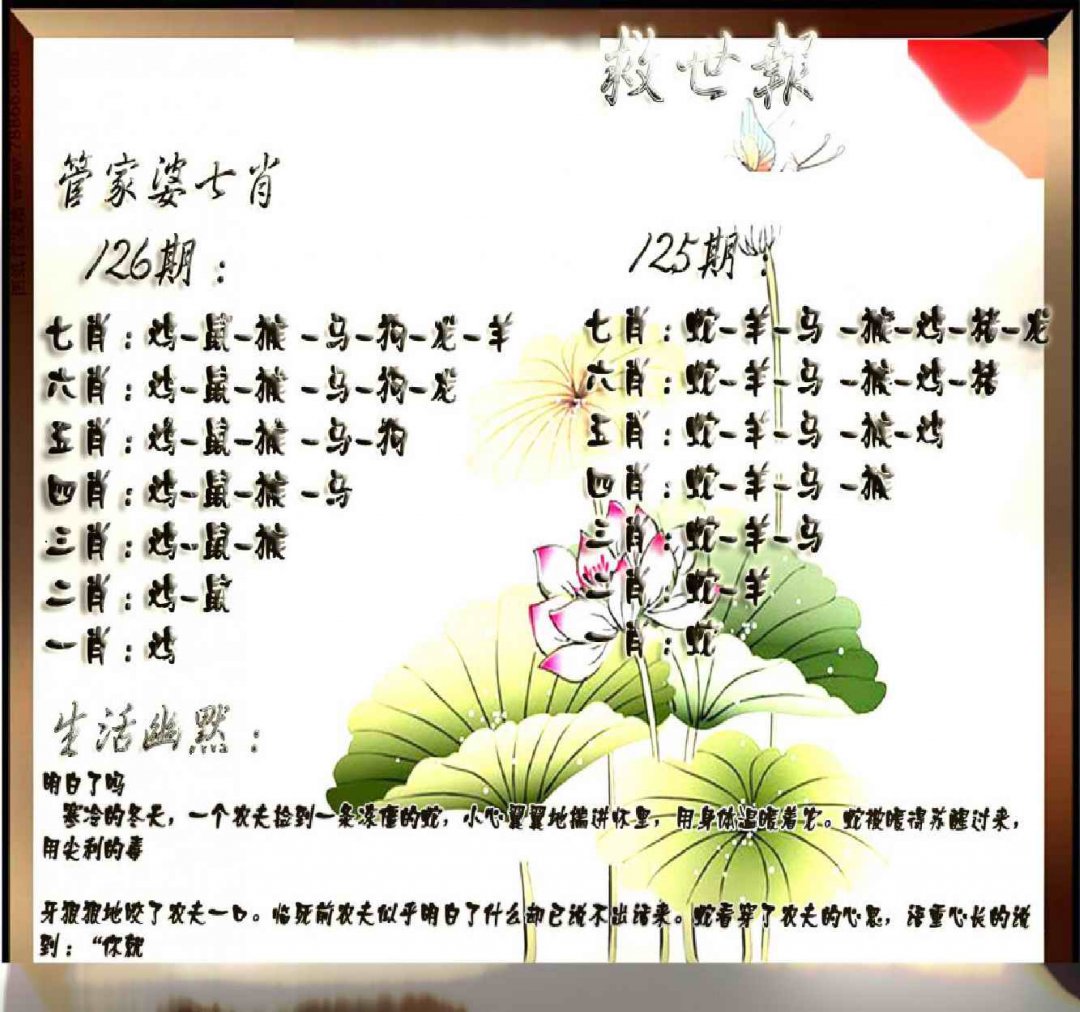 救世報
管家婆七肖
126期：
七肖：鸡-鼠-猴 -马-狗-龙-羊
六肖：鸡-鼠-猴 -马-狗-龙
五肖：鸡-鼠-猴 -马-狗
四肖：鸡-鼠-猴 -马
三肖：鸡-鼠-猴
二肖：鸡-鼠
一肖：鸡
125期：
七肖：蛇-羊-马 -猴-鸡-猪-龙
六肖：蛇-羊-马 -猴-鸡-猪
五肖：蛇-羊-马 -猴-鸡
四肖：蛇-羊-马 -猴
三肖：蛇-羊-马
二肖：蛇-羊
一肖：蛇
生活幽默：
明白了吗
寒冷的冬天，一个农夫捡到一条冻僵的蛇，小心翼翼地揣进怀里，用身体温暖着它。蛇被暖得苏醒过来，
用尖利的毒
牙狠狠地咬了农夫一口。临死前农夫似乎明白了什么却已说不出话来。蛇看穿了农夫的心思，语重心长的说
到：“你就